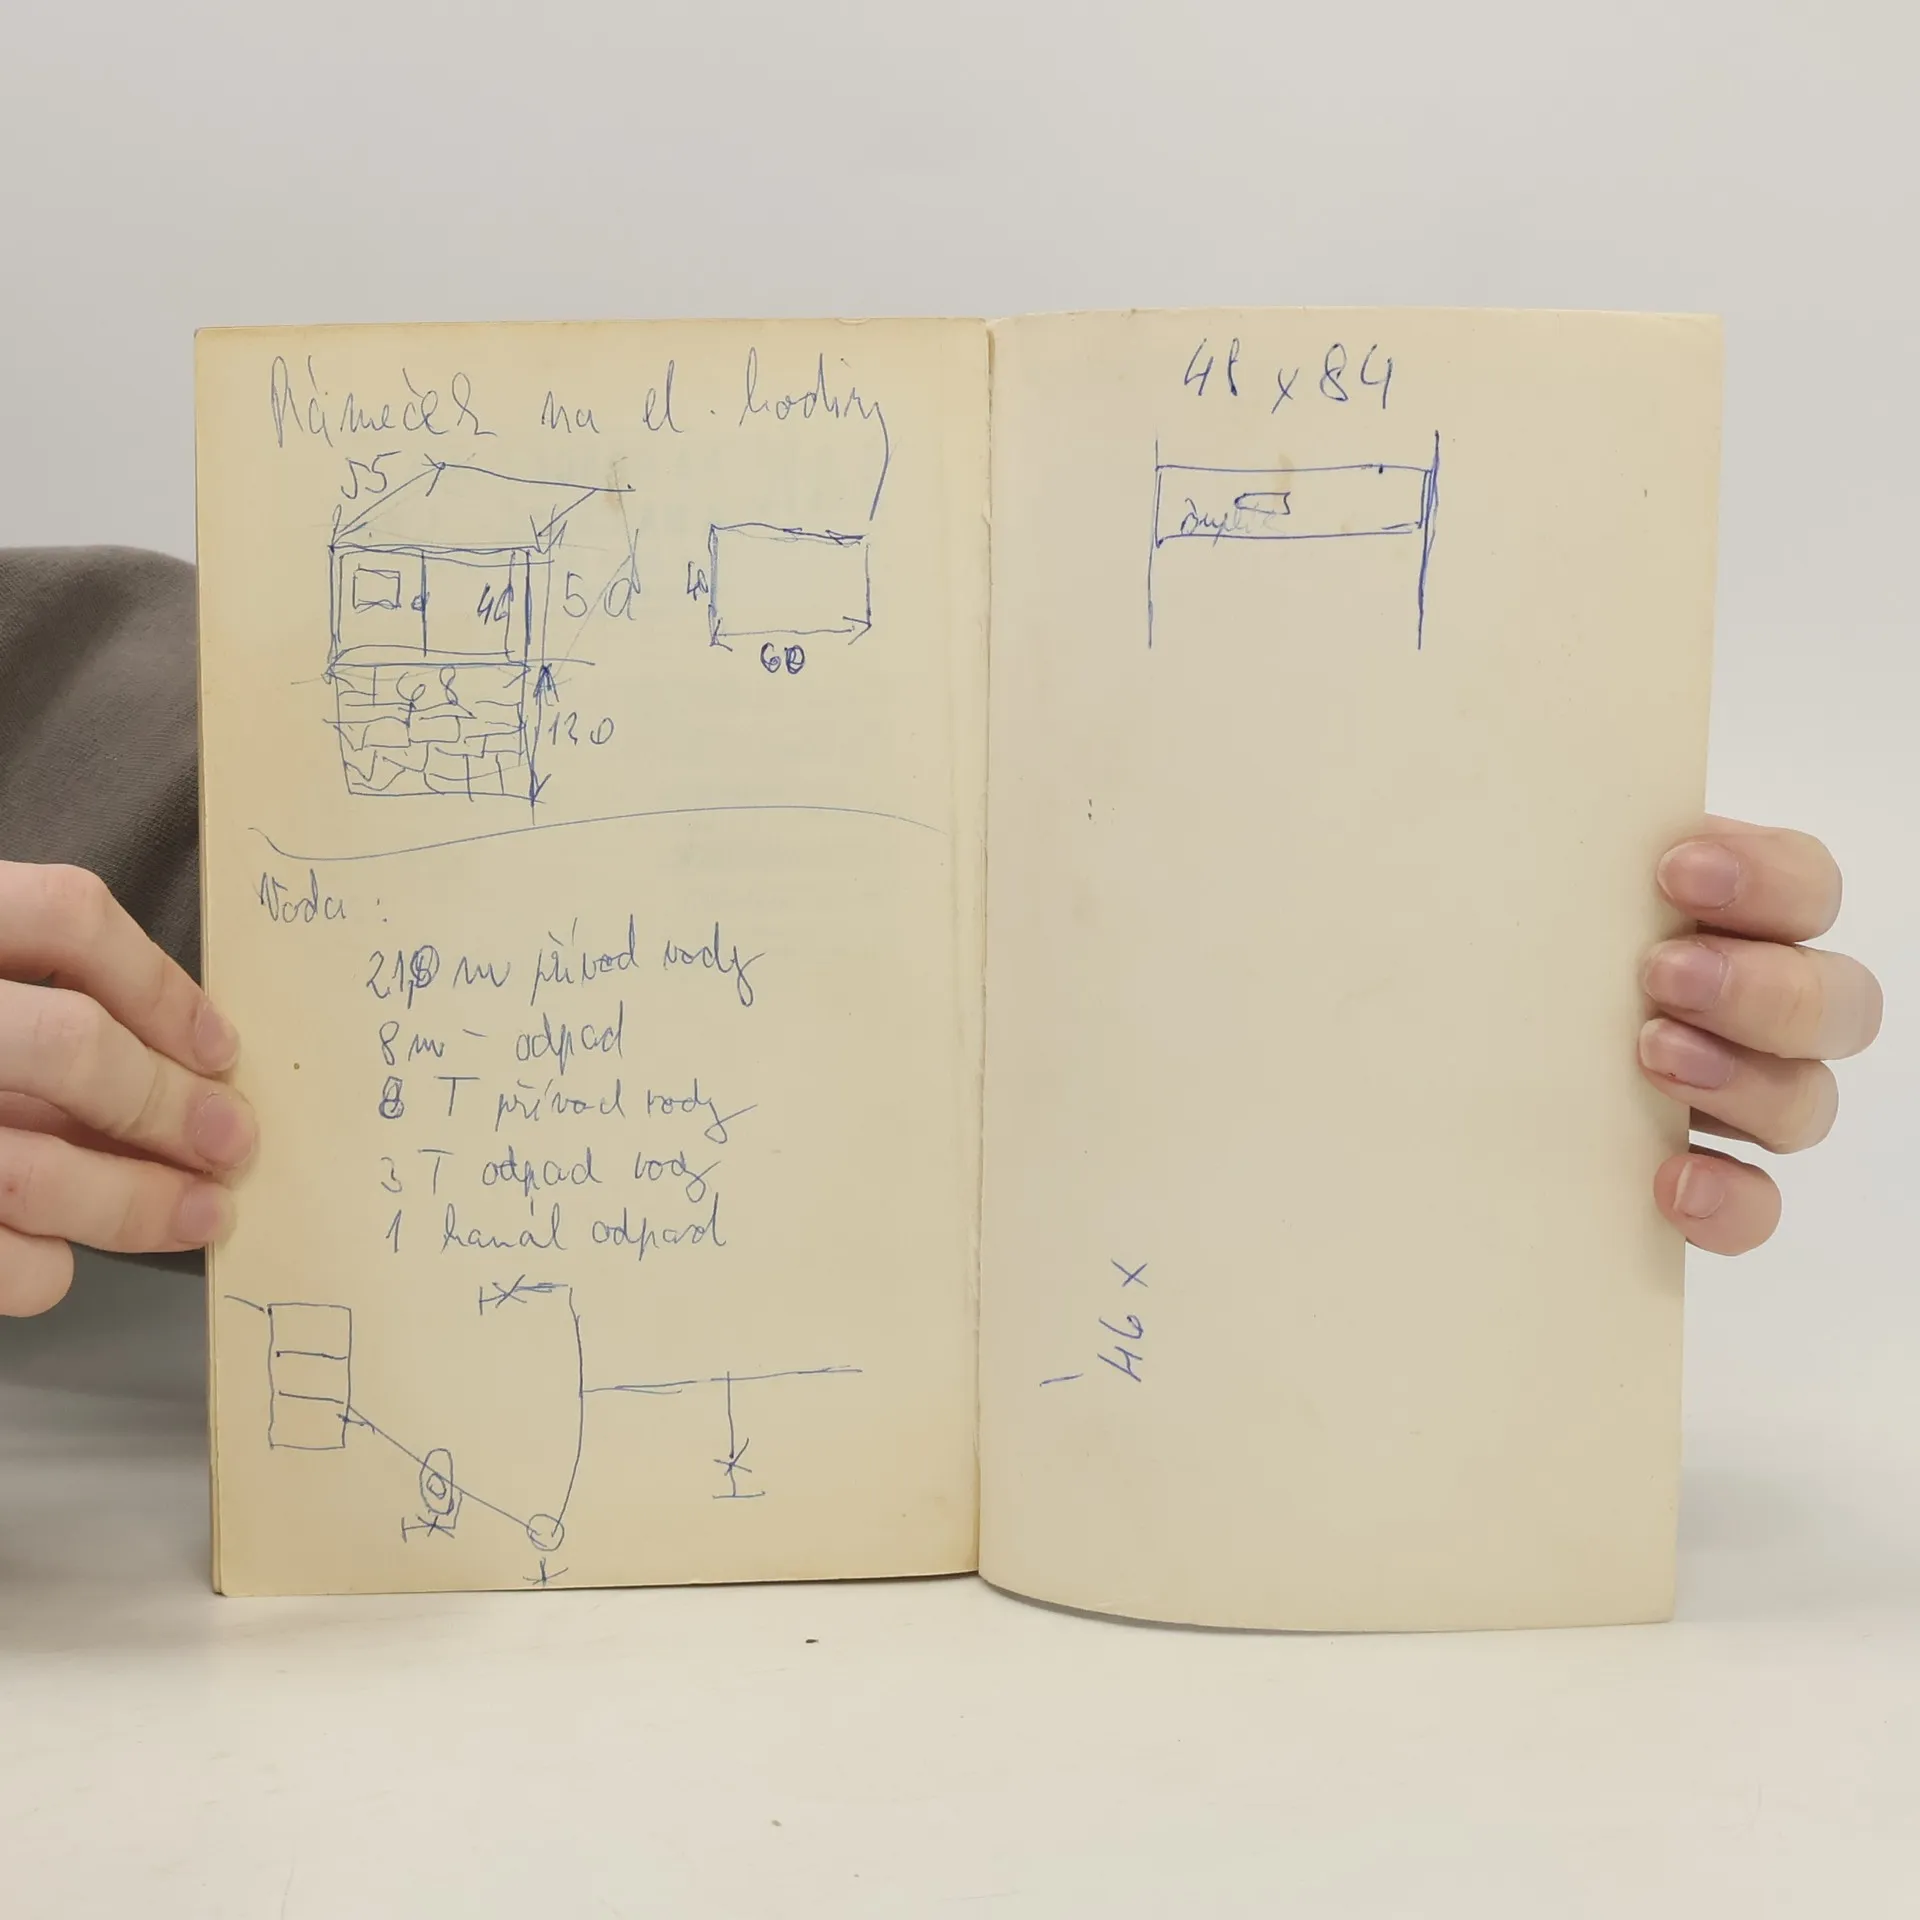 Rámeček na el. hodiny
55
46
50
40
60
68
120
Voda :
21,8 m přívod vody
8 m - odpad
8 T přívod vody
3 T odpad vody
1 kanál odpad
48 x 84
46 x